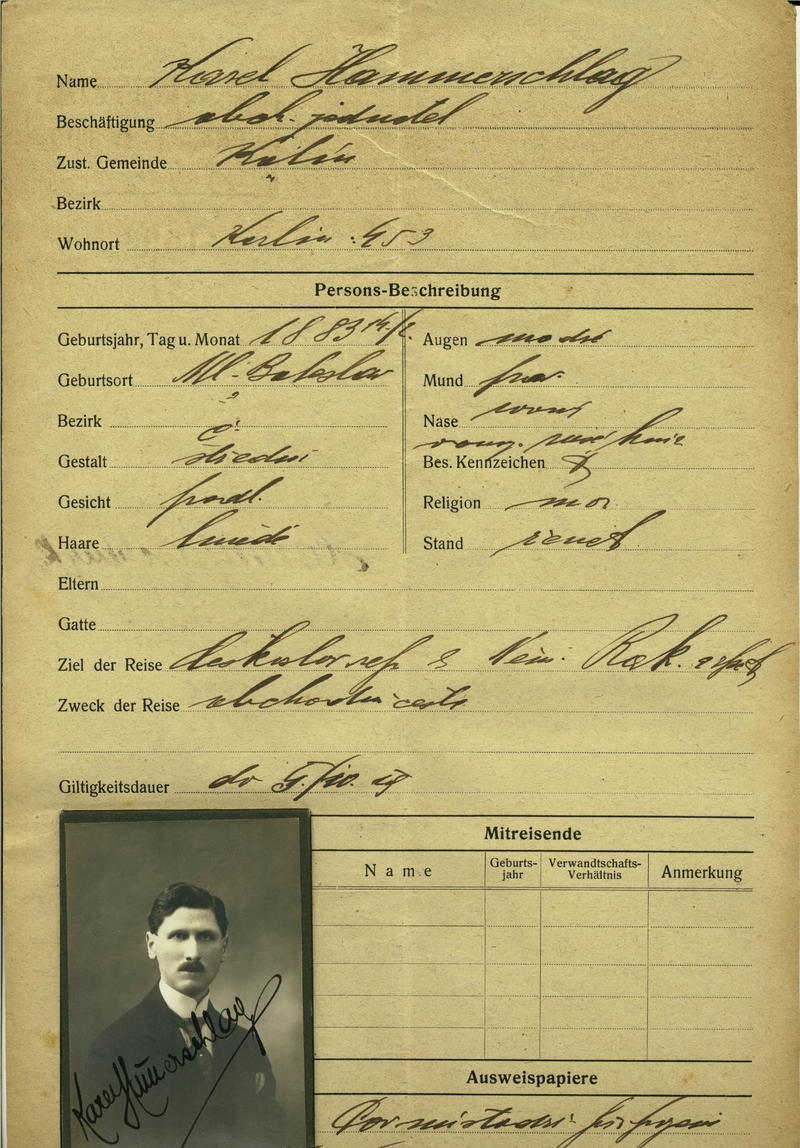 Name Karel Hammerschlag
Beschäftigung obch. jednatel
Zust. Gemeinde Kolín
Bezirk
Wohnort Kolín 453
Persons-Beschreibung
Geburtsjahr, Tag u. Monat 1883
Geburtsort Ml. Boleslav
Bezirk
Gestalt střední
Gesicht podl.
Haare hnědé
Augen modré
Mund
Nase rovný
Bes. Kennzeichen
Religion
Stand ženat
Eltern
Gatte
Ziel der Reise Českoslov. rep. Něm. Rak.
Zweck der Reise obchodní cesta
Giltigkeitsdauer do 5./10. 19
Mitreisende
Name
Geburts-jahr
Verwandtschafts-Verhältnis
Anmerkung
Karel Hammerschlag
Ausweispapiere